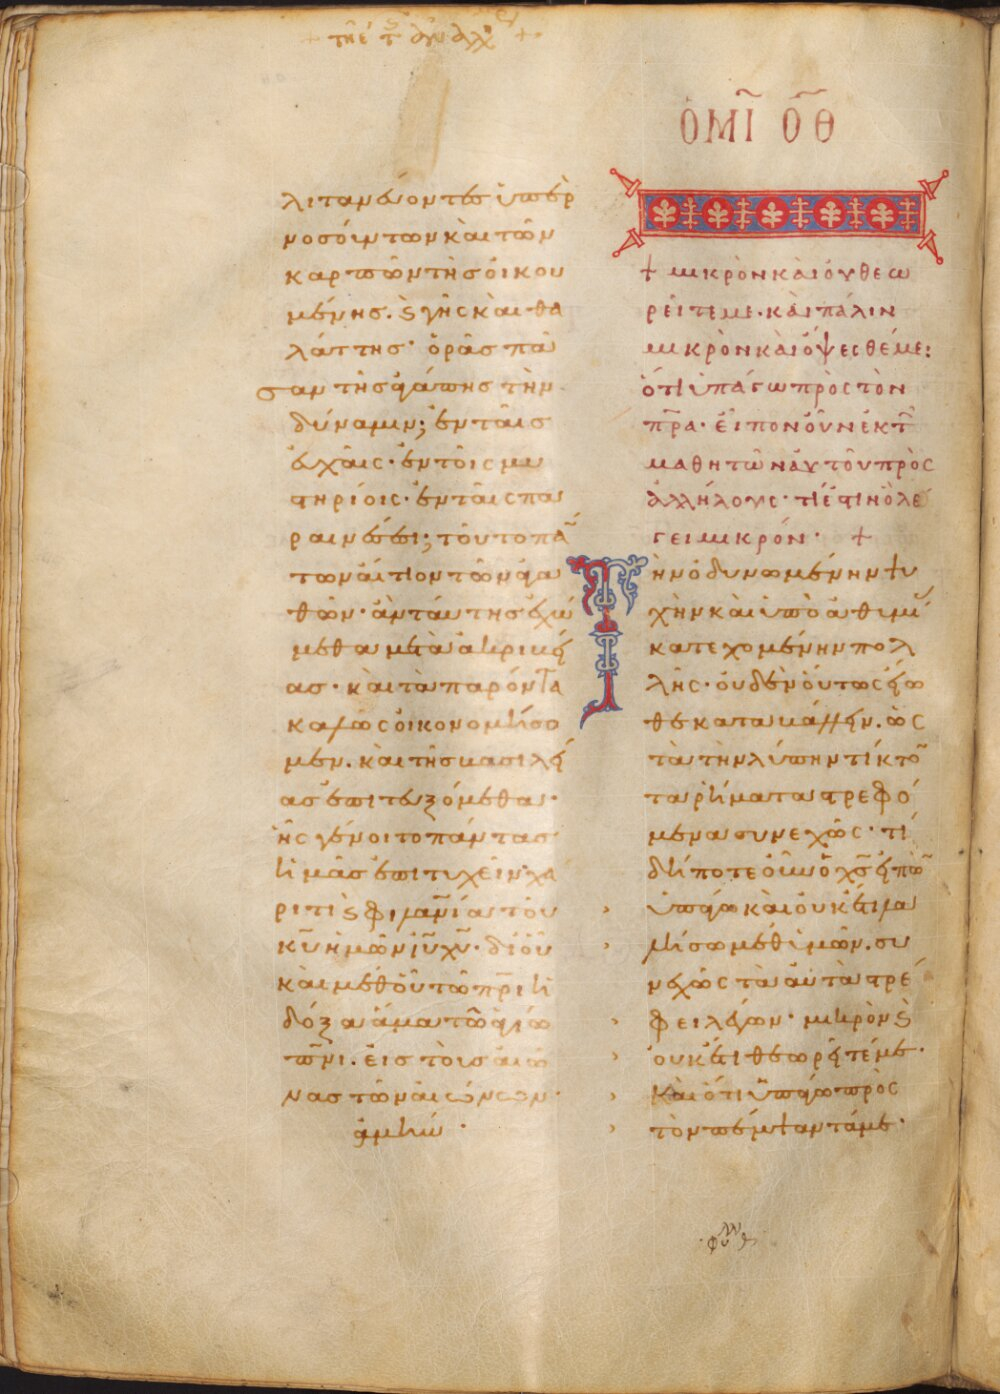 ὉΜΙ ΟΘ
λιτανεύοντες ὑπὲρ
νοσούντων καὶ τῶν
καρπῶν τῆς οἰκου
μένης. ϗ γῆς καὶ θα
λάττης· ὁρᾶς πᾶ
σαν τῆς ἀγάπης τὴν
δύναμιν; ἐν ταῖς
εὐχαῖς· ἐν τοῖς μυ
στηρίοις· ἐν ταῖς πα
ραινέσεσι; τοῦτο πάν
των αἴτιον τῶν ἀγα
θῶν· ἂν ταύτης ἐχώ
μεθα μετὰ ἀκριβεί
ας· καὶ τὰ παρόντα
καλῶς οἰκονομήσο
μεν. καὶ τῆς βασιλεί
ας ἐπιτευξόμεθα·
ἧς γένοιτο πάντας
ἡμᾶς ἐπιτυχεῖν χά
ριτι ϗ φιλανίᾳ τοῦ
κυ ἡμῶν ιυ χυ· δι' οὗ
καὶ μεθ' οὗ τῷ πρι ἡ
δόξα ἅμα τῷ ἁγίῳ
πνι. εἰς τοὺς αἰῶ
νας τῶν αἰώνων·
ἀμήν·
+ μικρὸν καὶ οὐ θεω
ρεῖτέ με· καὶ πάλιν
μικρὸν καὶ ὄψεσθέ με:
ὅτι ὑπάγω πρὸς τὸν
πρα· εἶπον οὖν ἐκ τ
μαθητῶν αὐτοῦ πρὸς
ἀλλήλους· τί ἐστιν ὃ λέ
γει μικρόν· +
Τὴν ὀδυνωμένην ψυ
χὴν καὶ ὑπὸ ἀθυμί
κατεχομένην πολ
λῆς· οὐδὲν οὕτως εἴω
θε καταβάλλειν. ὡς
τὰ τὴν λύπην τίκτο
τα ῥήματα στρεφό
μενα συνεχῶς· τί
δήποτε οὖν ὁ χς εἰπὼ
ὑπάγω καὶ οὐκέτι λα
λήσω μεθ' ὑμῶν. συ
νεχῶς τὰ αὐτὰ στρέ
φει λέγων· μικρὸν ϗ
οὐκέτι θεωρεῖτέ με·
καὶ ὅτι ὑπάγω πρὸς
τὸν πέμψαντά με·